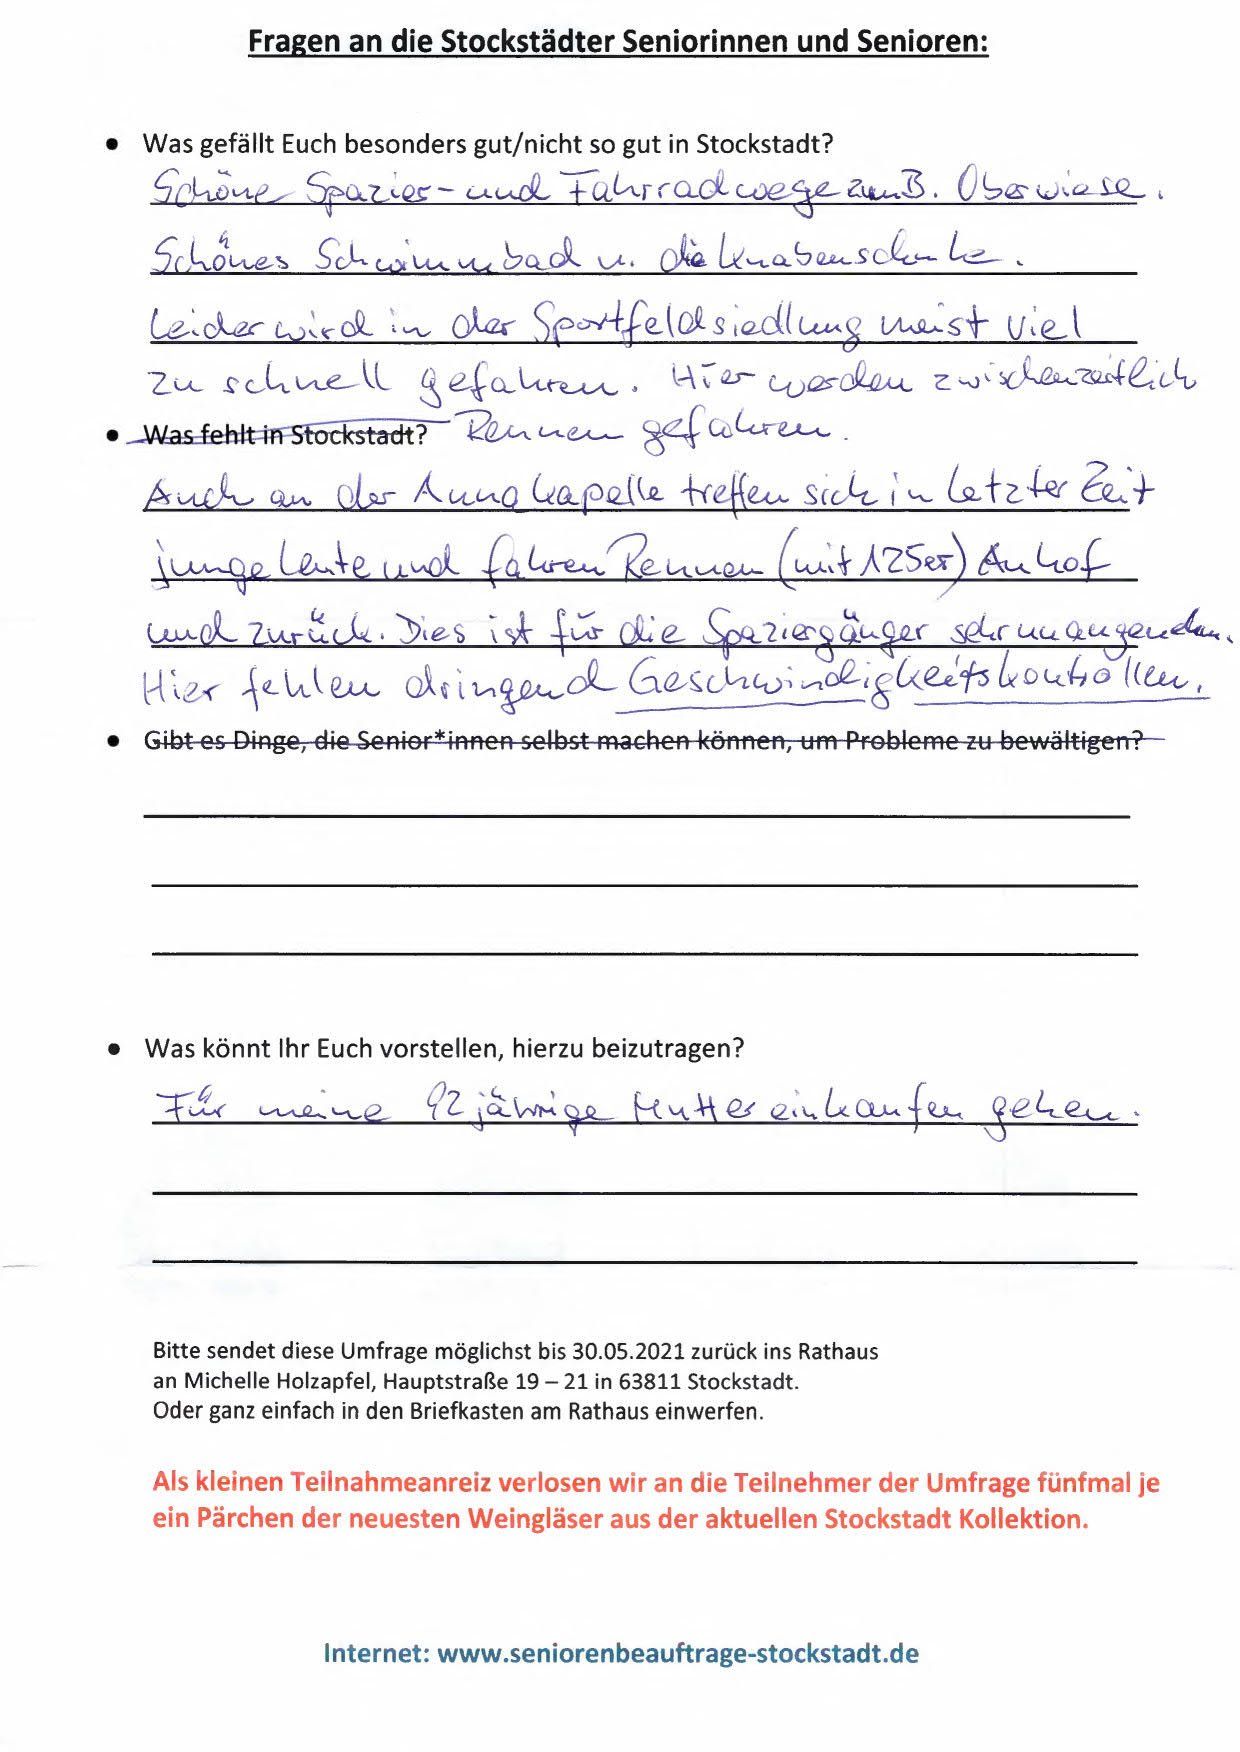 Fragen an die Stockstädter Seniorinnen und Senioren:
• Was gefällt Euch besonders gut/nicht so gut in Stockstadt?
Schöne Spazier- und Fahrradwege zum B. Oberwiese.
Schönes Schwimmbad u. die Knabenschule.
Leider wird in der Sportfeldsiedlung meist viel
zu schnell gefahren. Hier werden zwischenzeitlich
• Was fehlt in Stockstadt? Rennen gefahren.
Auch an der Annakapelle treffen sich in letzter Zeit
junge Leute und fahren Rennen (mit 125er)
und zurück. Dies ist für die Spaziergänger sehr unangenehm.
Hier fehlen dringend Geschwindigkeitskontrollen.
• Gibt es Dinge, die Senior*innen selbst machen können, um Probleme zu bewältigen?
• Was könnt Ihr Euch vorstellen, hierzu beizutragen?
Für meine 92 jährige Mutter einkaufen gehen.
Bitte sendet diese Umfrage möglichst bis 30.05.2021 zurück ins Rathaus
an Michelle Holzapfel, Hauptstraße 19 – 21 in 63811 Stockstadt.
Oder ganz einfach in den Briefkasten am Rathaus einwerfen.
Als kleinen Teilnahmeanreiz verlosen wir an die Teilnehmer der Umfrage fünfmal je
ein Pärchen der neuesten Weingläser aus der aktuellen Stockstadt Kollektion.
Internet: www.seniorenbeauftrage-stockstadt.de